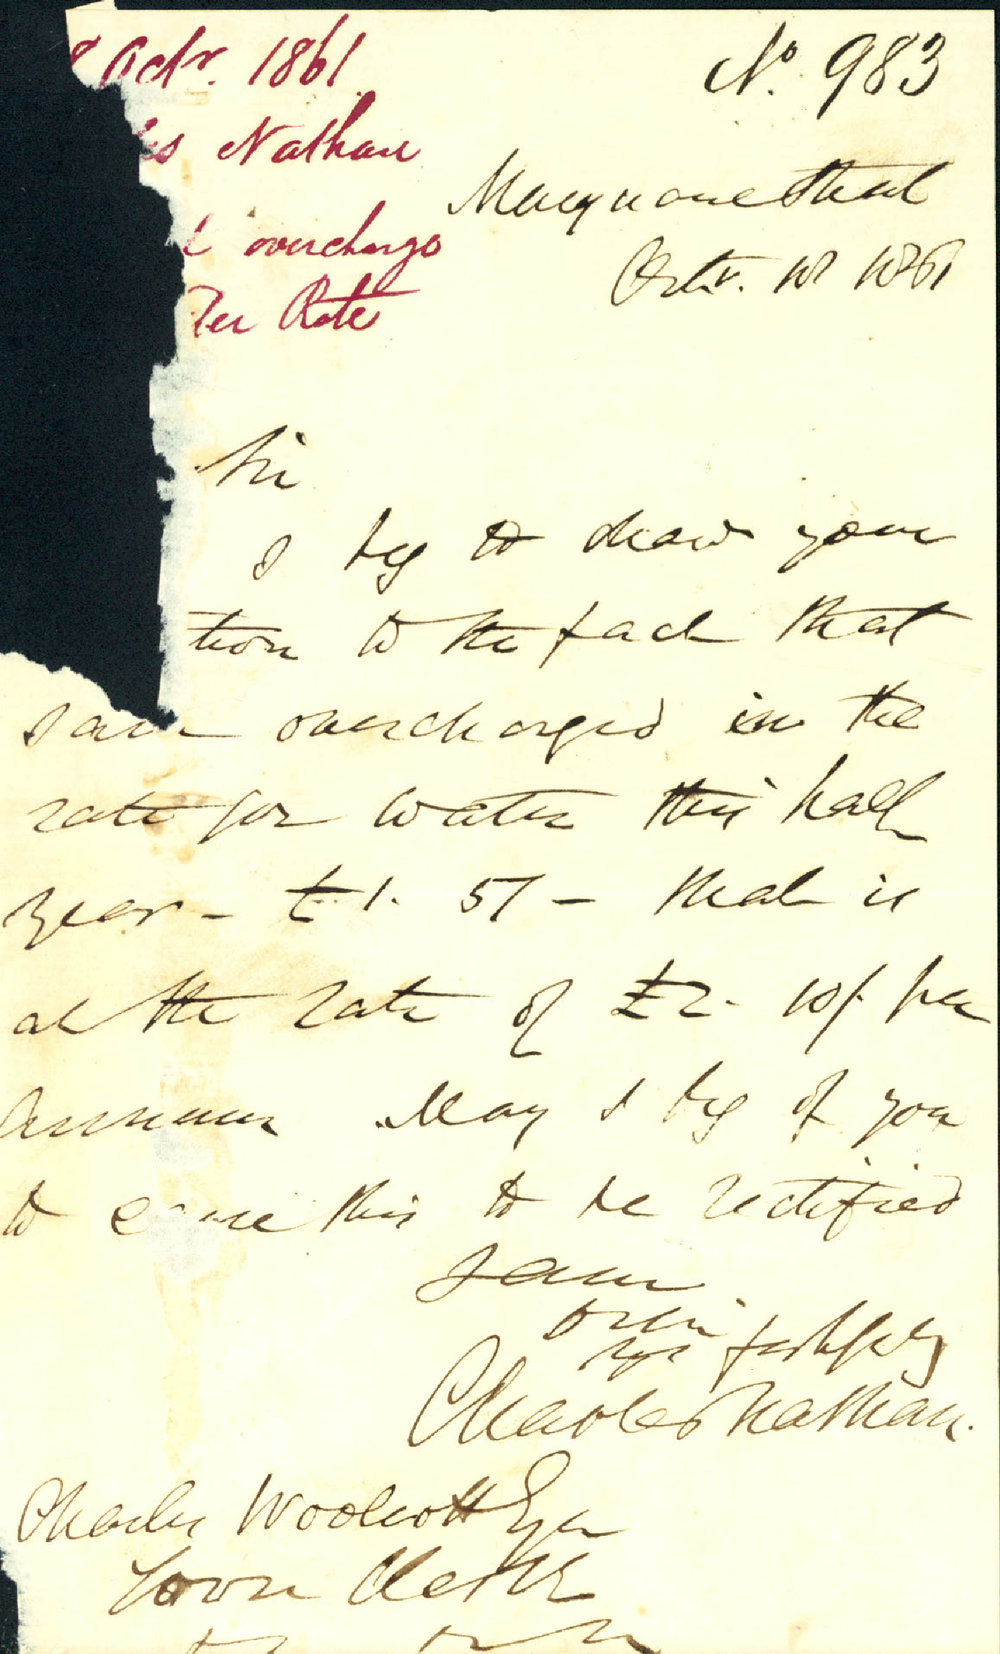 8 Octr. 1861
No. 983
es Nathan
Macquarie Street
overcharge
Octr. 18 1861
ter Rate
Sir
I beg to draw your
tion to the fact that
I am overcharged in the
rate for water this half
year - £1. 5/ - that is
at the rate of £2. 10/. per
Annum May I beg of you
to cause this to be rectified
I am
Dr Sir
yrs faithfully
Charles Nathan.
Charles Woolcott Esqr
Town Clerk